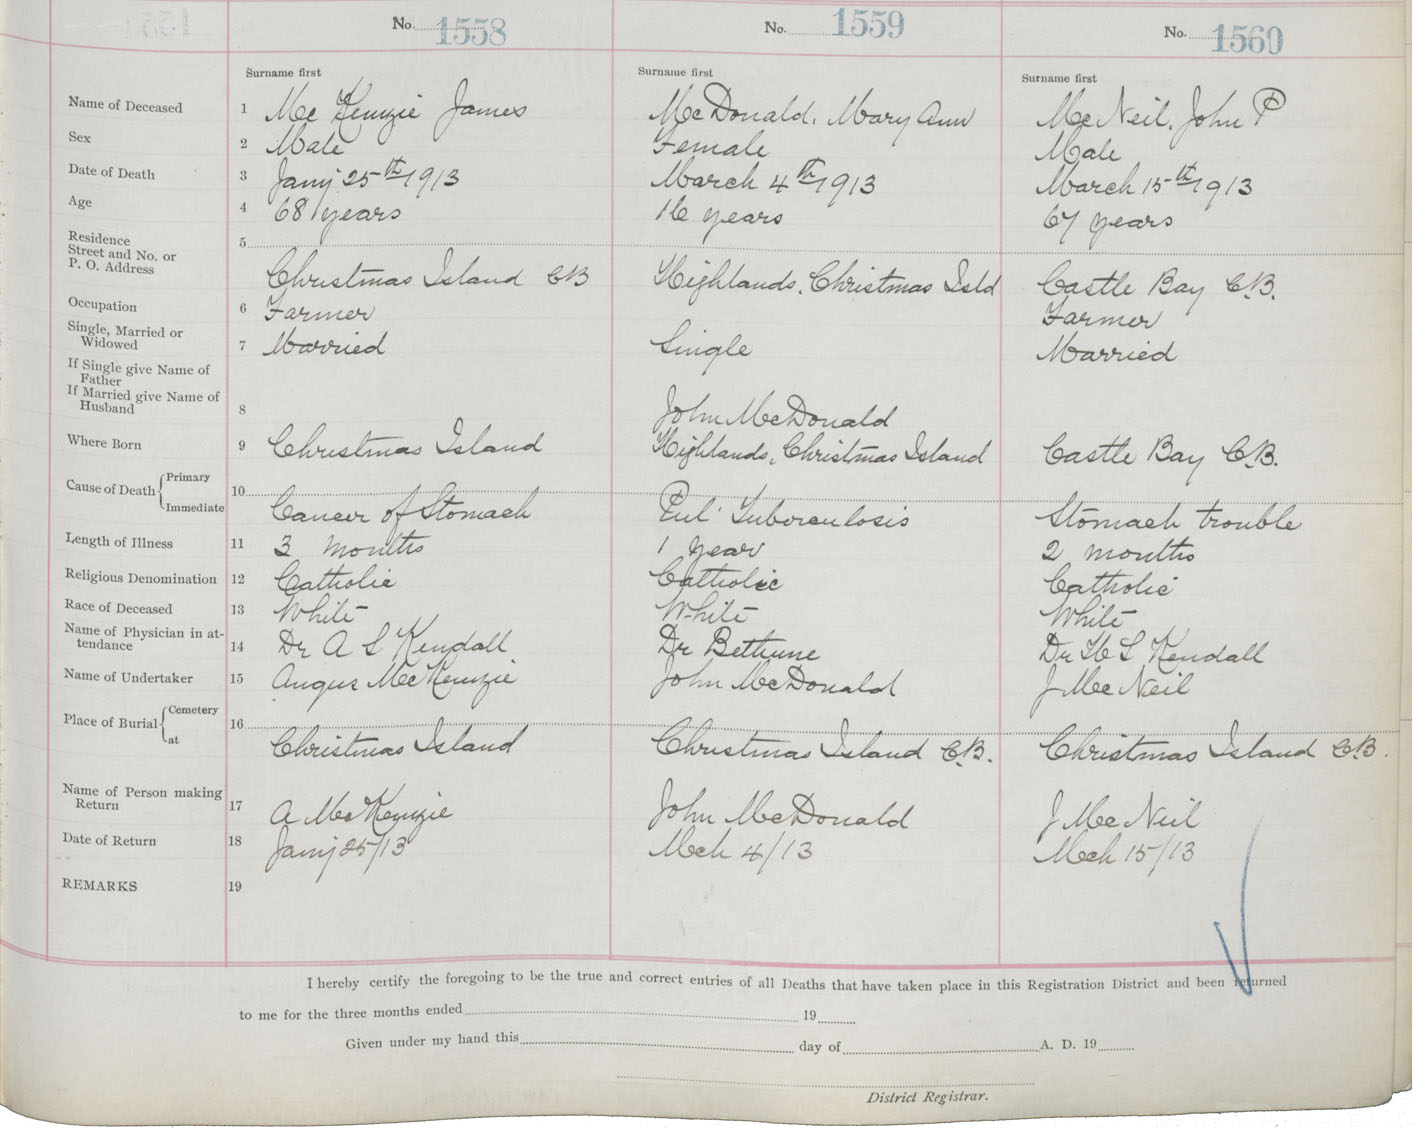 No. 1558 No. 1559 No. 1560
Surname first Surname first Surname first
Name of Deceased 1 McKenzie James McDonald, Mary Ann McNeil, John P
Sex 2 Male Female Male
Date of Death 3 Jany 25th 1913 March 4th 1913 March 15th 1913
Age 4 68 years 16 years 67 years
Residence 5
Street and No. or
P. O. Address Christmas Island CB Highlands, Christmas Isld Castle Bay C.B.
Occupation 6 Farmer Farmer
Single, Married or
Widowed 7 Married Single Married
If Single give Name of
Father
If Married give Name of
Husband 8 John McDonald
Where Born 9 Christmas Island Highlands, Christmas Island Castle Bay C.B.
Cause of Death Primary 10
Immediate Cancer of Stomach Pul' Tuberculosis Stomach trouble
Length of Illness 11 3 months 1 year 2 months
Religious Denomination 12 Catholic Catholic Catholic
Race of Deceased 13 White White White
Name of Physician in at-
tendance 14 Dr A S Kendall Dr Bethune Dr H S Kendall
Name of Undertaker 15 Angus McKenzie John McDonald J McNeil
Place of Burial Cemetery 16
at Christmas Island Christmas Island C.B. Christmas Island C.B.
Name of Person making
Return 17 A McKenzie John McDonald J McNeil
Date of Return 18 Jany 25/13 Mch 4/13 Mch 15/13
REMARKS 19
I hereby certify the foregoing to be the true and correct entries of all Deaths that have taken place in this Registration District and been returned
to me for the three months ended 19
Given under my hand this day of A. D. 19
District Registrar.